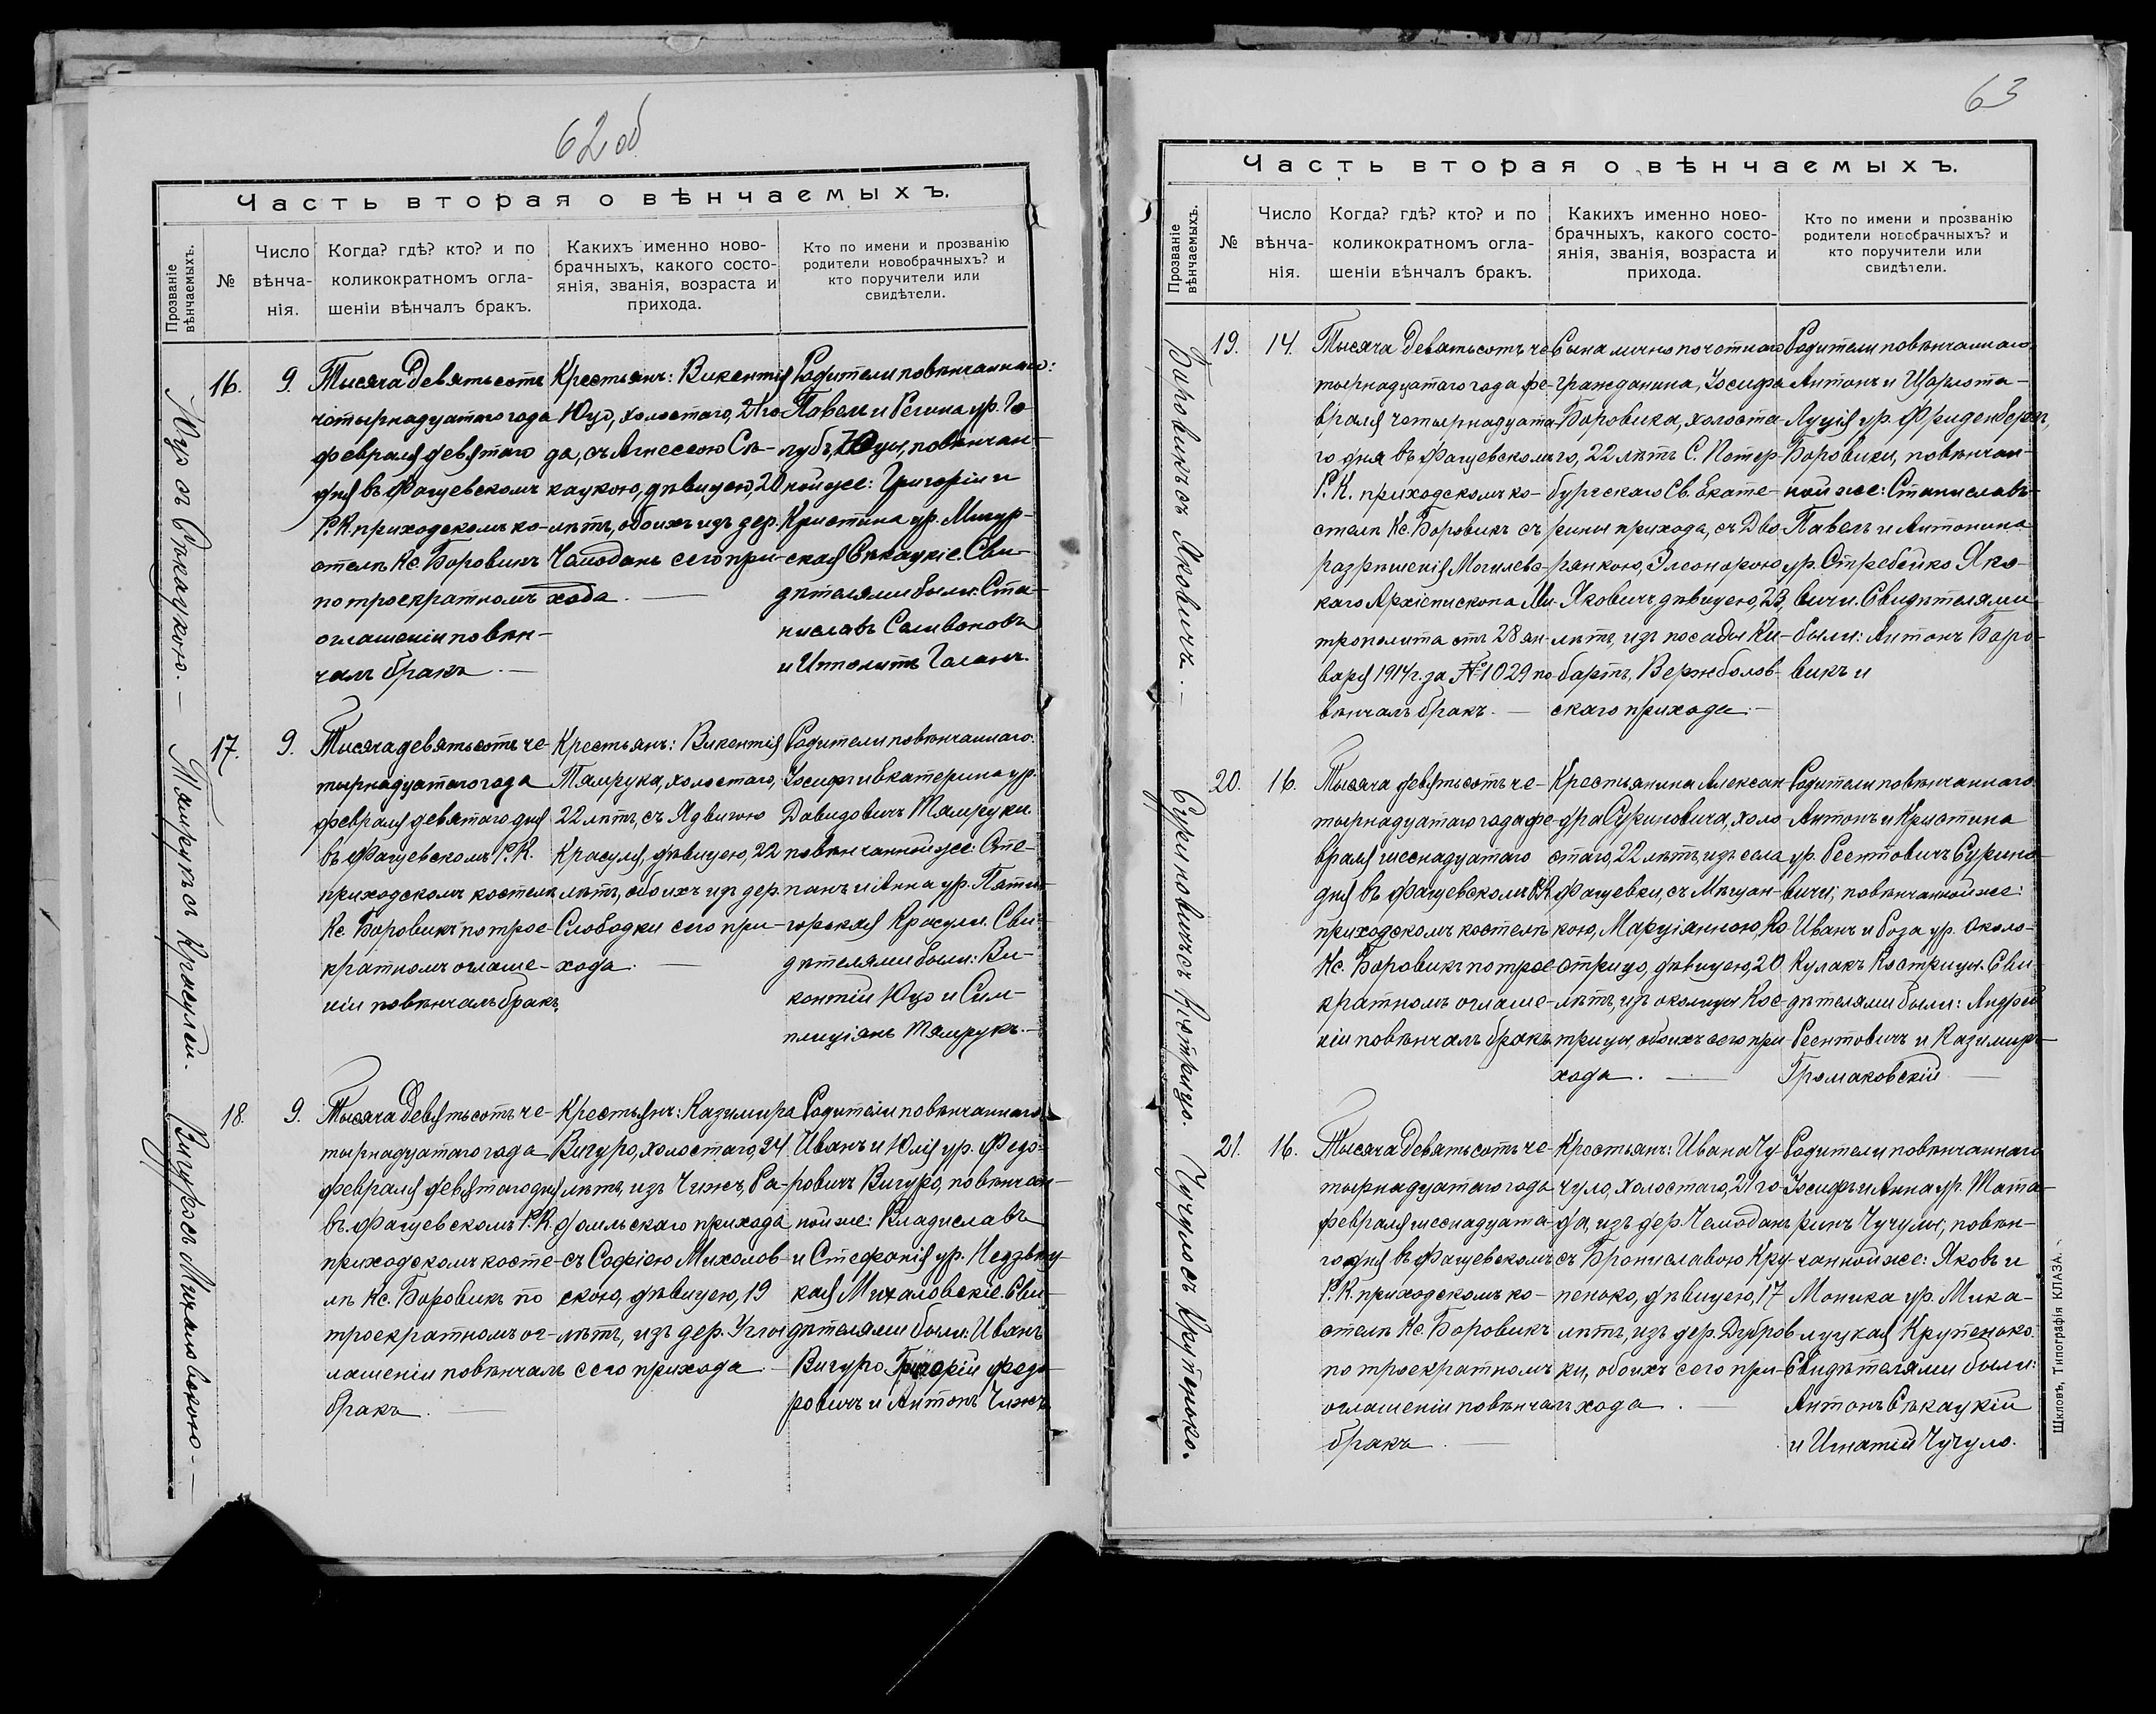 62 об
Часть вторая о вѣнчаемыхъ.
Прозваніе вѣнчаемыхъ.
№
Число вѣнча- нія.
Когда? гдѣ? кто? и по
коликократномъ огла-
шеніи вѣнчалъ бракъ.
Какихъ именно ново-
брачныхъ, какого состо-
янія, званія, возраста и
прихода.
Кто по имени и прозванію
родители новобрачныхъ? и
кто поручители или
свидѣтели.
Юцо съ Сѣкацкою.
16.
9.
Тысяча девятьсотъ
четырнадцатаго года
февраля девятаго
дня въ Фащевскомъ
Р.К. приходскомъ ко-
стелѣ Кс. Боровикъ
по троекратномъ
оглашеніи повѣн-
чалъ бракъ.
Крестьянъ: Викентія
Юцо, холостаго, 21 го-
да, съ Агнессою Сѣ-
кацкою, дѣвицею, 20
лѣтъ, обоихъ изъ дер.
Чемоданъ сего при-
хода.
Родители повѣнчаннаго:
Павелъ и Регина ур. Го-
лубъ, Юцы, повѣнчан-
ной же: Григорій и
Кристина ур. Мигур-
ская Сѣкацкіе. Сви-
дѣтелями были: Ста-
ниславъ Селивоновъ
и Ипполитъ Галанъ.
Тамрукъ съ Красулей.
17.
9.
Тысяча девятьсотъ че-
тырнадцатаго года
февраля девятаго дня
въ Фащевскомъ Р.К.
приходскомъ костелѣ
Кс. Боровикъ по трое-
кратномъ оглаше-
ніи повѣнчалъ бракъ.
Крестьянъ: Викентія
Тамрука, холостаго,
22 лѣтъ, съ Ядвигою
Красуля, дѣвицею, 22
лѣтъ, обоихъ изъ дер.
Слободки сего при-
хода.
Родители повѣнчаннаго:
Іосифъ и Екатерина ур.
Давидовичъ Тамруки
повѣнчанной же: Сте-
панъ и Анна ур. Пяти-
горская Красули. Сви-
дѣтелями были: Ви-
кентій Юцо и Сим-
плиціянъ Тамрукъ.
Вигуро съ Михаловскою.
18.
9.
Тысяча девятьсотъ че-
тырнадцатаго года
февраля девятаго дня
въ Фащевскомъ Р.К.
приходскомъ косте-
лѣ Кс. Боровикъ по
троекратномъ ог-
лашеніи повѣнчалъ
бракъ.
Крестьянъ: Казимира
Вигуро, холостаго, 24
лѣтъ, изъ Чижъ, Ра-
фаельскаго прихода
съ Софіею Михалов-
скою, дѣвицею, 19
лѣтъ, изъ дер. Углы
сего прихода.
Родители повѣнчаннаго:
Иванъ и Юлія ур. Федо-
ровичъ Вигуро, повѣнчан-
ной же: Владиславъ
и Стефанія ур. Недзвец-
кая Михаловскіе. Сви-
дѣтелями были: Иванъ
Вигуро, Григорій Федо-
ровичъ и Антонъ Чижъ
63
Часть вторая о вѣнчаемыхъ.
Прозваніе вѣнчаемыхъ.
№
Число вѣнча- нія.
Когда? гдѣ? кто? и по
коликократномъ огла-
шеніи вѣнчалъ бракъ.
Какихъ именно ново-
брачныхъ, какого состо-
янія, званія, возраста и
прихода.
Кто по имени и прозванію
родители новобрачныхъ? и
кто поручители или
свидѣтели.
Боровикъ съ Яковичъ.
19.
14.
Тысяча девятьсотъ че-
тырнадцатаго года фе-
враля четырнадцата-
го дня въ Фащевскомъ
Р.К. приходскомъ ко-
стелѣ Кс. Боровикъ съ
разрѣшенія Могилевс-
каго Архіепископа Ми-
трополита отъ 28 ян-
варя 1914 г. за № 1029 по-
вѣнчалъ бракъ.
Сына лично почотнаго
гражданина, Іосифа
Боровика, холоста-
го, 22 лѣтъ С. Петер-
бургскаго Св. Екате-
рины прихода, съ Дво-
рянкою, Элеонорою
Яковичъ, дѣвицею, 23
лѣтъ, изъ посады Ки-
бартъ, Вержболов-
скаго прихода.
Родители повѣнчаннаго:
Антонъ и Шарлота-
Луція ур. Фриденбергъ,
Боровики, повѣнчан-
ной же: Станиславъ-
Павелъ и Антонина
ур. Стребейко Яко-
вичи. Свидѣтелями
были: Антонъ Боро-
викъ и
Суриновичъ съ Кострицо.
20.
16.
Тысяча девятьсотъ че-
тырнадцатаго года фе-
враля шеснадцатаго
дня въ Фащевскомъ Р.К.
приходскомъ костелѣ
Кс. Боровикъ по трое-
кратномъ оглаше-
ніи повѣнчалъ бракъ
Крестьянина Алексан-
дра Суриновича, холо-
стаго, 22 лѣтъ, изъ села
Фащевки, съ Мѣщан-
кою, Марціянною, Ко-
стрицо, дѣвицею, 20
лѣтъ, изъ околицы Кос-
трицы, обоихъ сего при-
хода.
Родители повѣнчаннаго:
Антонъ и Кристина
ур. Реентовичъ Сурино-
вичи, повѣнчанной же:
Иванъ и Роза ур. Около-
Кулакъ Кострицы. Сви-
дѣтелями были: Андрей
Реентовичъ и Казимиръ
Громаковскій
Чучуло съ Крупенько.
21.
16.
Тысяча девятьсотъ че-
тырнадцатаго года
февраля шеснадцата-
го дня въ Фащевскомъ
Р.К. приходскомъ ко-
стелѣ Кс. Боровикъ
по троекратномъ
оглашеніи повѣнчалъ
бракъ.
Крестьянъ: Ивана Чу-
чуло, холостаго, 21 го-
да, изъ дер. Чемоданъ
съ Брониславою Кру-
пенько, дѣвицею, 17
лѣтъ, изъ дер. Дубров-
ки, обоихъ сего при-
хода.
Родители повѣнчаннаго
Іосифъ и Анна ур. Тата-
ринъ Чучулы, повѣн-
чанной же: Яковъ и
Моника ур. Мика-
луцкая Крупенько.
Свидѣтелями были:
Антонъ Сѣкацкій
и Игнатій Чучуло.
Шкловъ, Типографія КЛАЗА.